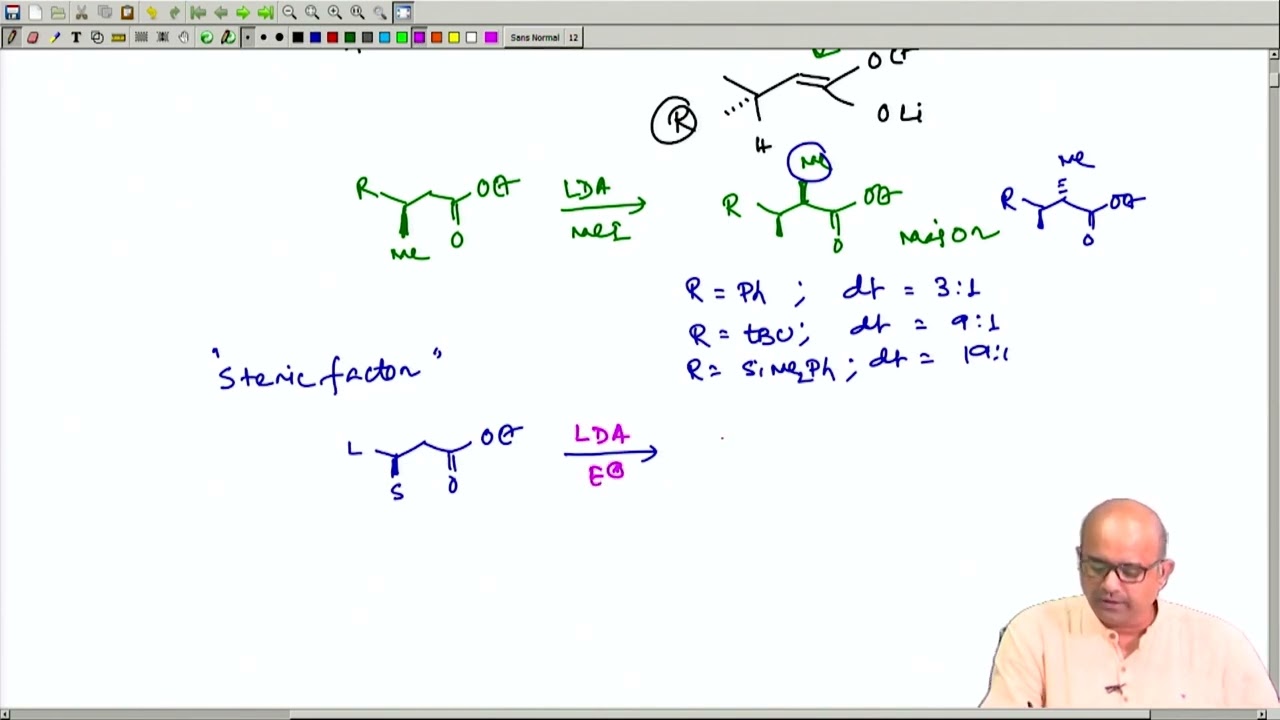 Sans Normal 12
OEt
OLi
R
H
R Me OEt O
LDA
MeI
R Me OEt O
Major
R Me OEt O
R = Ph ; dr = 3:1
R = tBu ; dr = 9:1
R = SiMe2Ph ; dr = 19:1
"Steric factor"
L S OEt O
LDA
E⊕